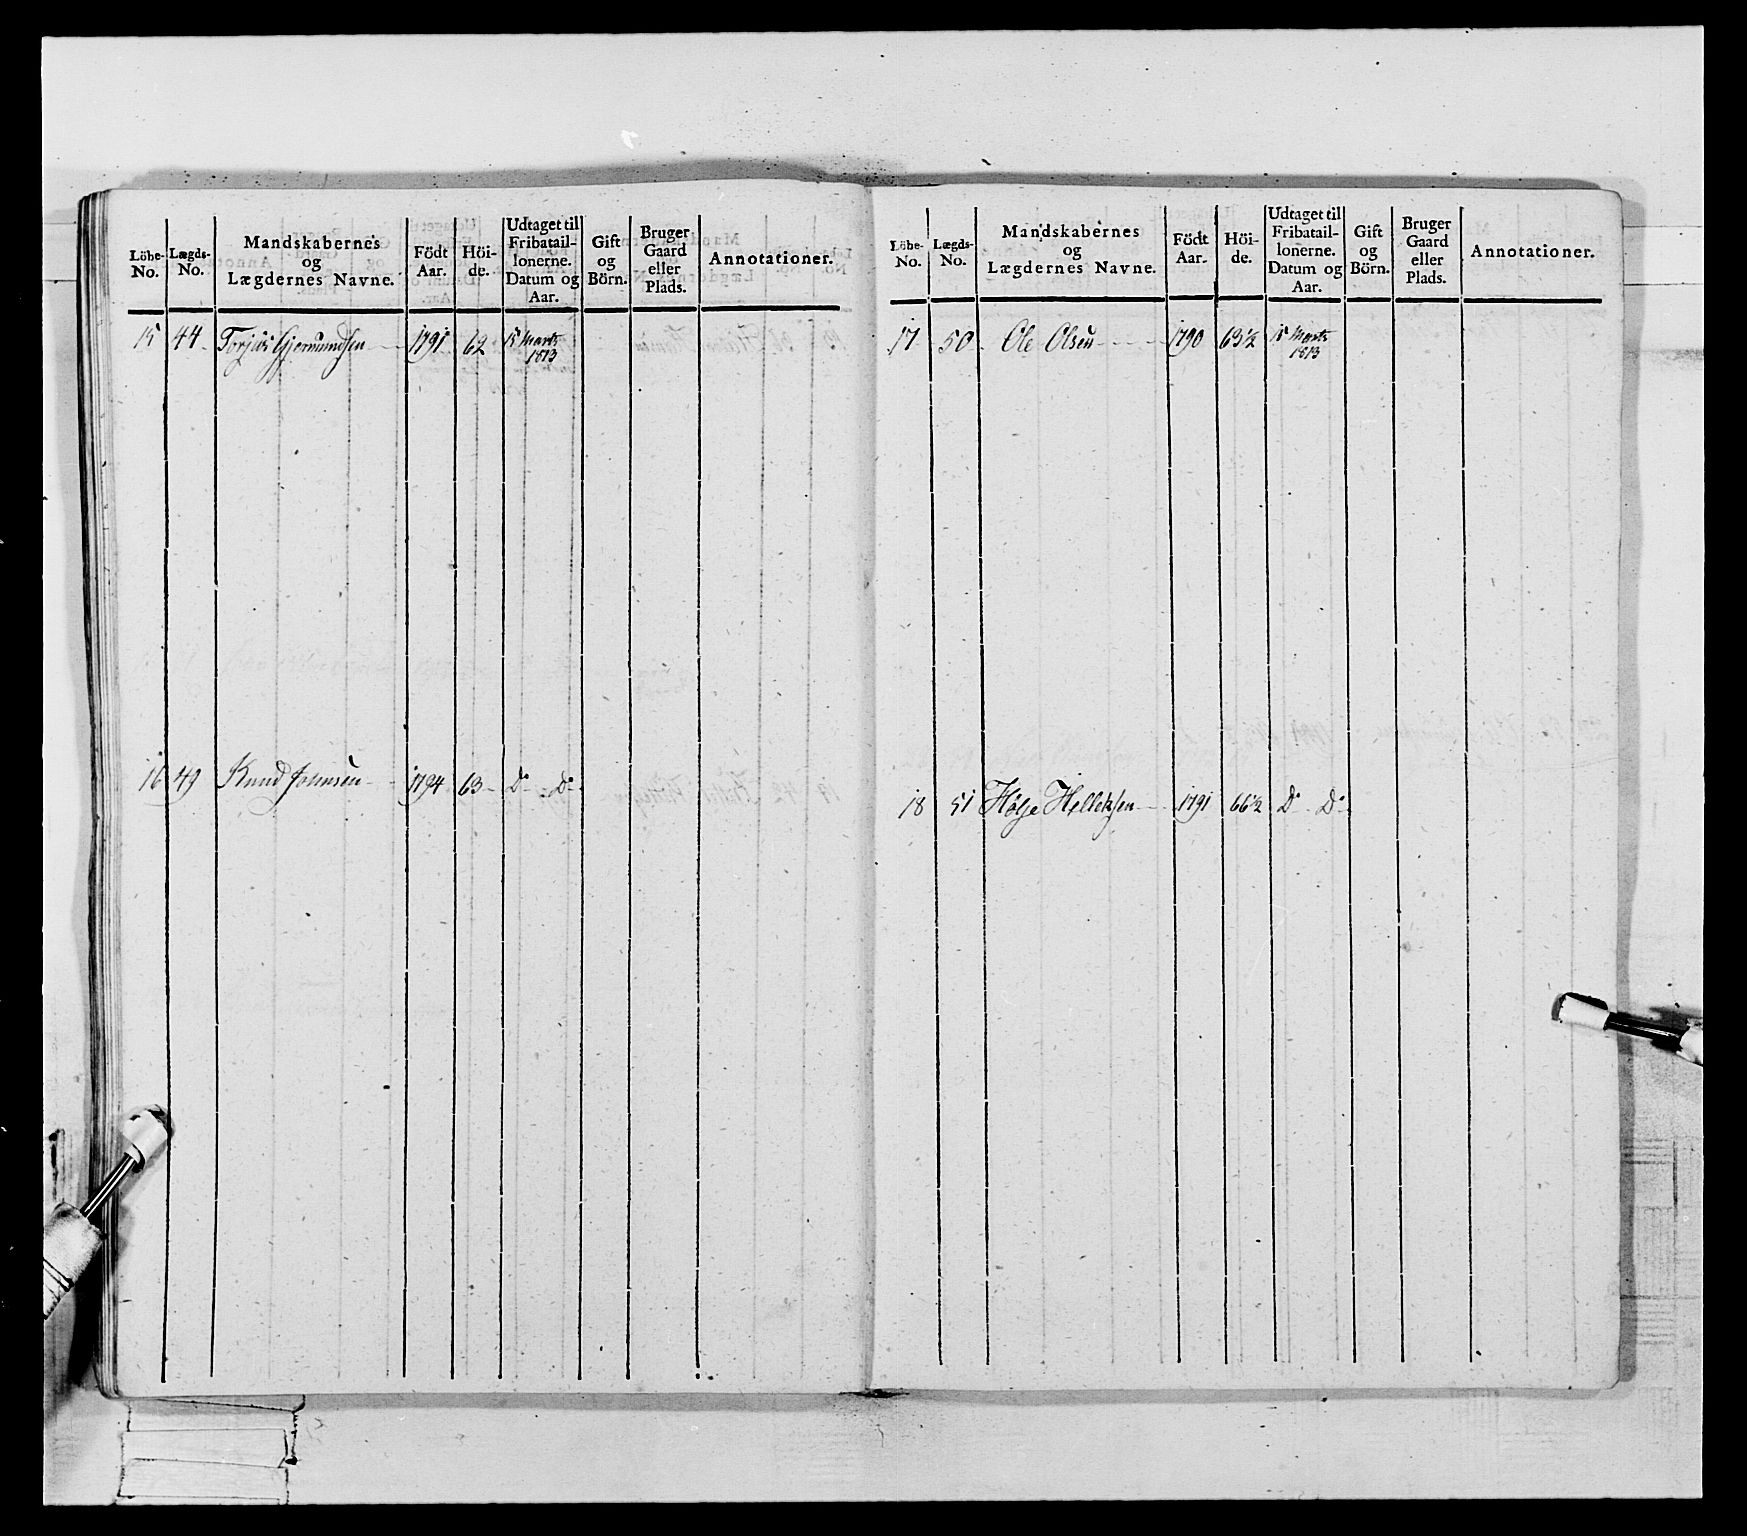 Löbe-No. Lægds-No. Mandskabernes og Lægdernes Navne. Födt Aar. Höi-de. Udtaget til Fribatail-lonerne. Datum og Aar. Gift og Börn. Bruger Gaard eller Plads. Annotationer.
15 44 Torjus Gjermundsen 1791 62 15 Marts 1813
16 49 Knud Johnsen 1794 63 Do Do
Löbe-No. Lægds-No. Mandskabernes og Lægdernes Navne. Födt Aar. Höi-de. Udtaget til Fribatail-lonerne. Datum og Aar. Gift og Börn. Bruger Gaard eller Plads. Annotationer.
17 50 Ole Olsen 1790 63½ 15 Marts 1813
18 51 Hølje Helleksen 1791 66½ Do Do